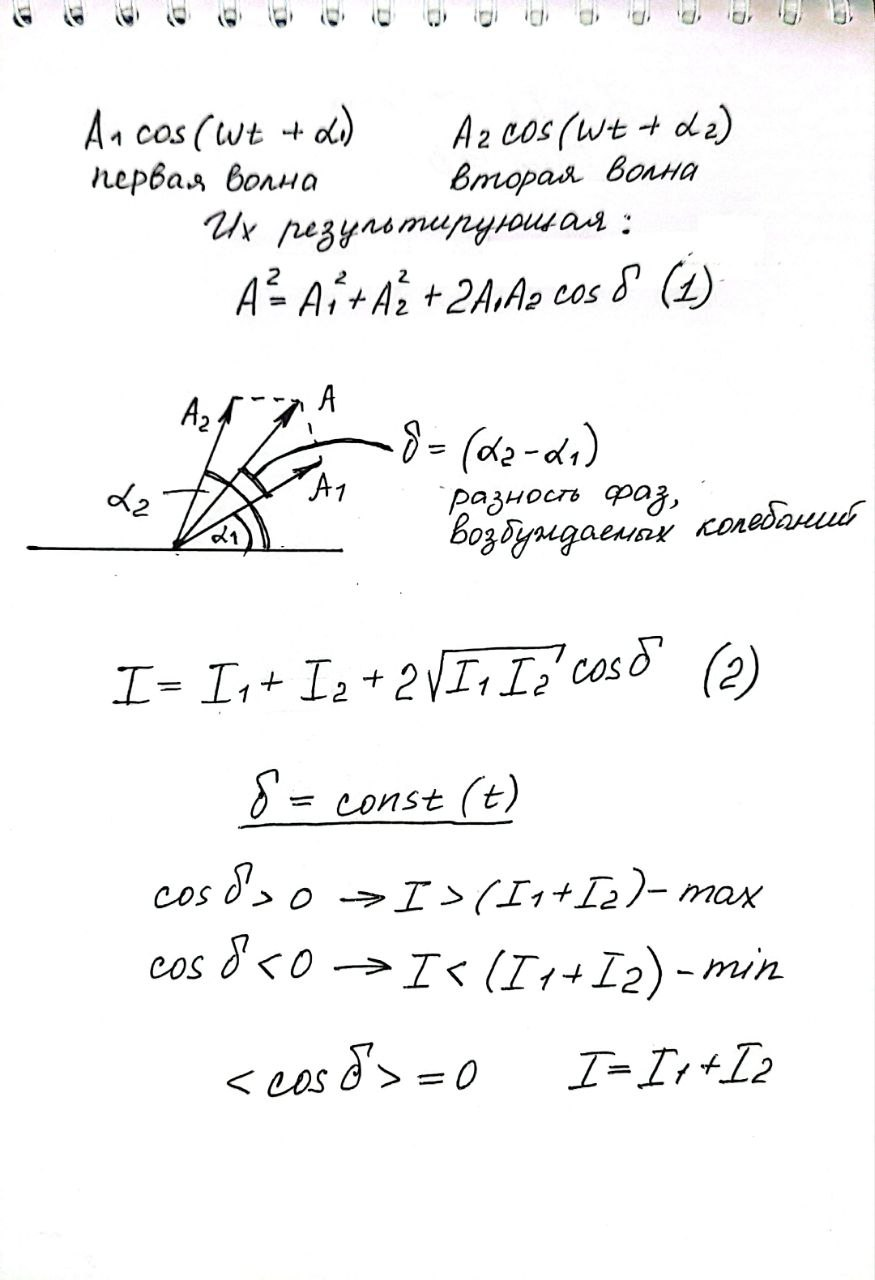 A₁ cos(wt + α₁) A₂ cos(wt + α₂)
первая волна вторая волна
Их результирующая:
A² = A₁² + A₂² + 2A₁A₂ cos δ (1)
A₂ A
δ = (α₂ - α₁)
α₂ A₁
разность фаз,
α₁ возбуждаемых колебаний
I = I₁ + I₂ + 2√(I₁ I₂) cos δ (2)
δ = const (t)
cos δ > 0 → I > (I₁ + I₂) - max
cos δ < 0 → I < (I₁ + I₂) - min
< cos δ > = 0 I = I₁ + I₂